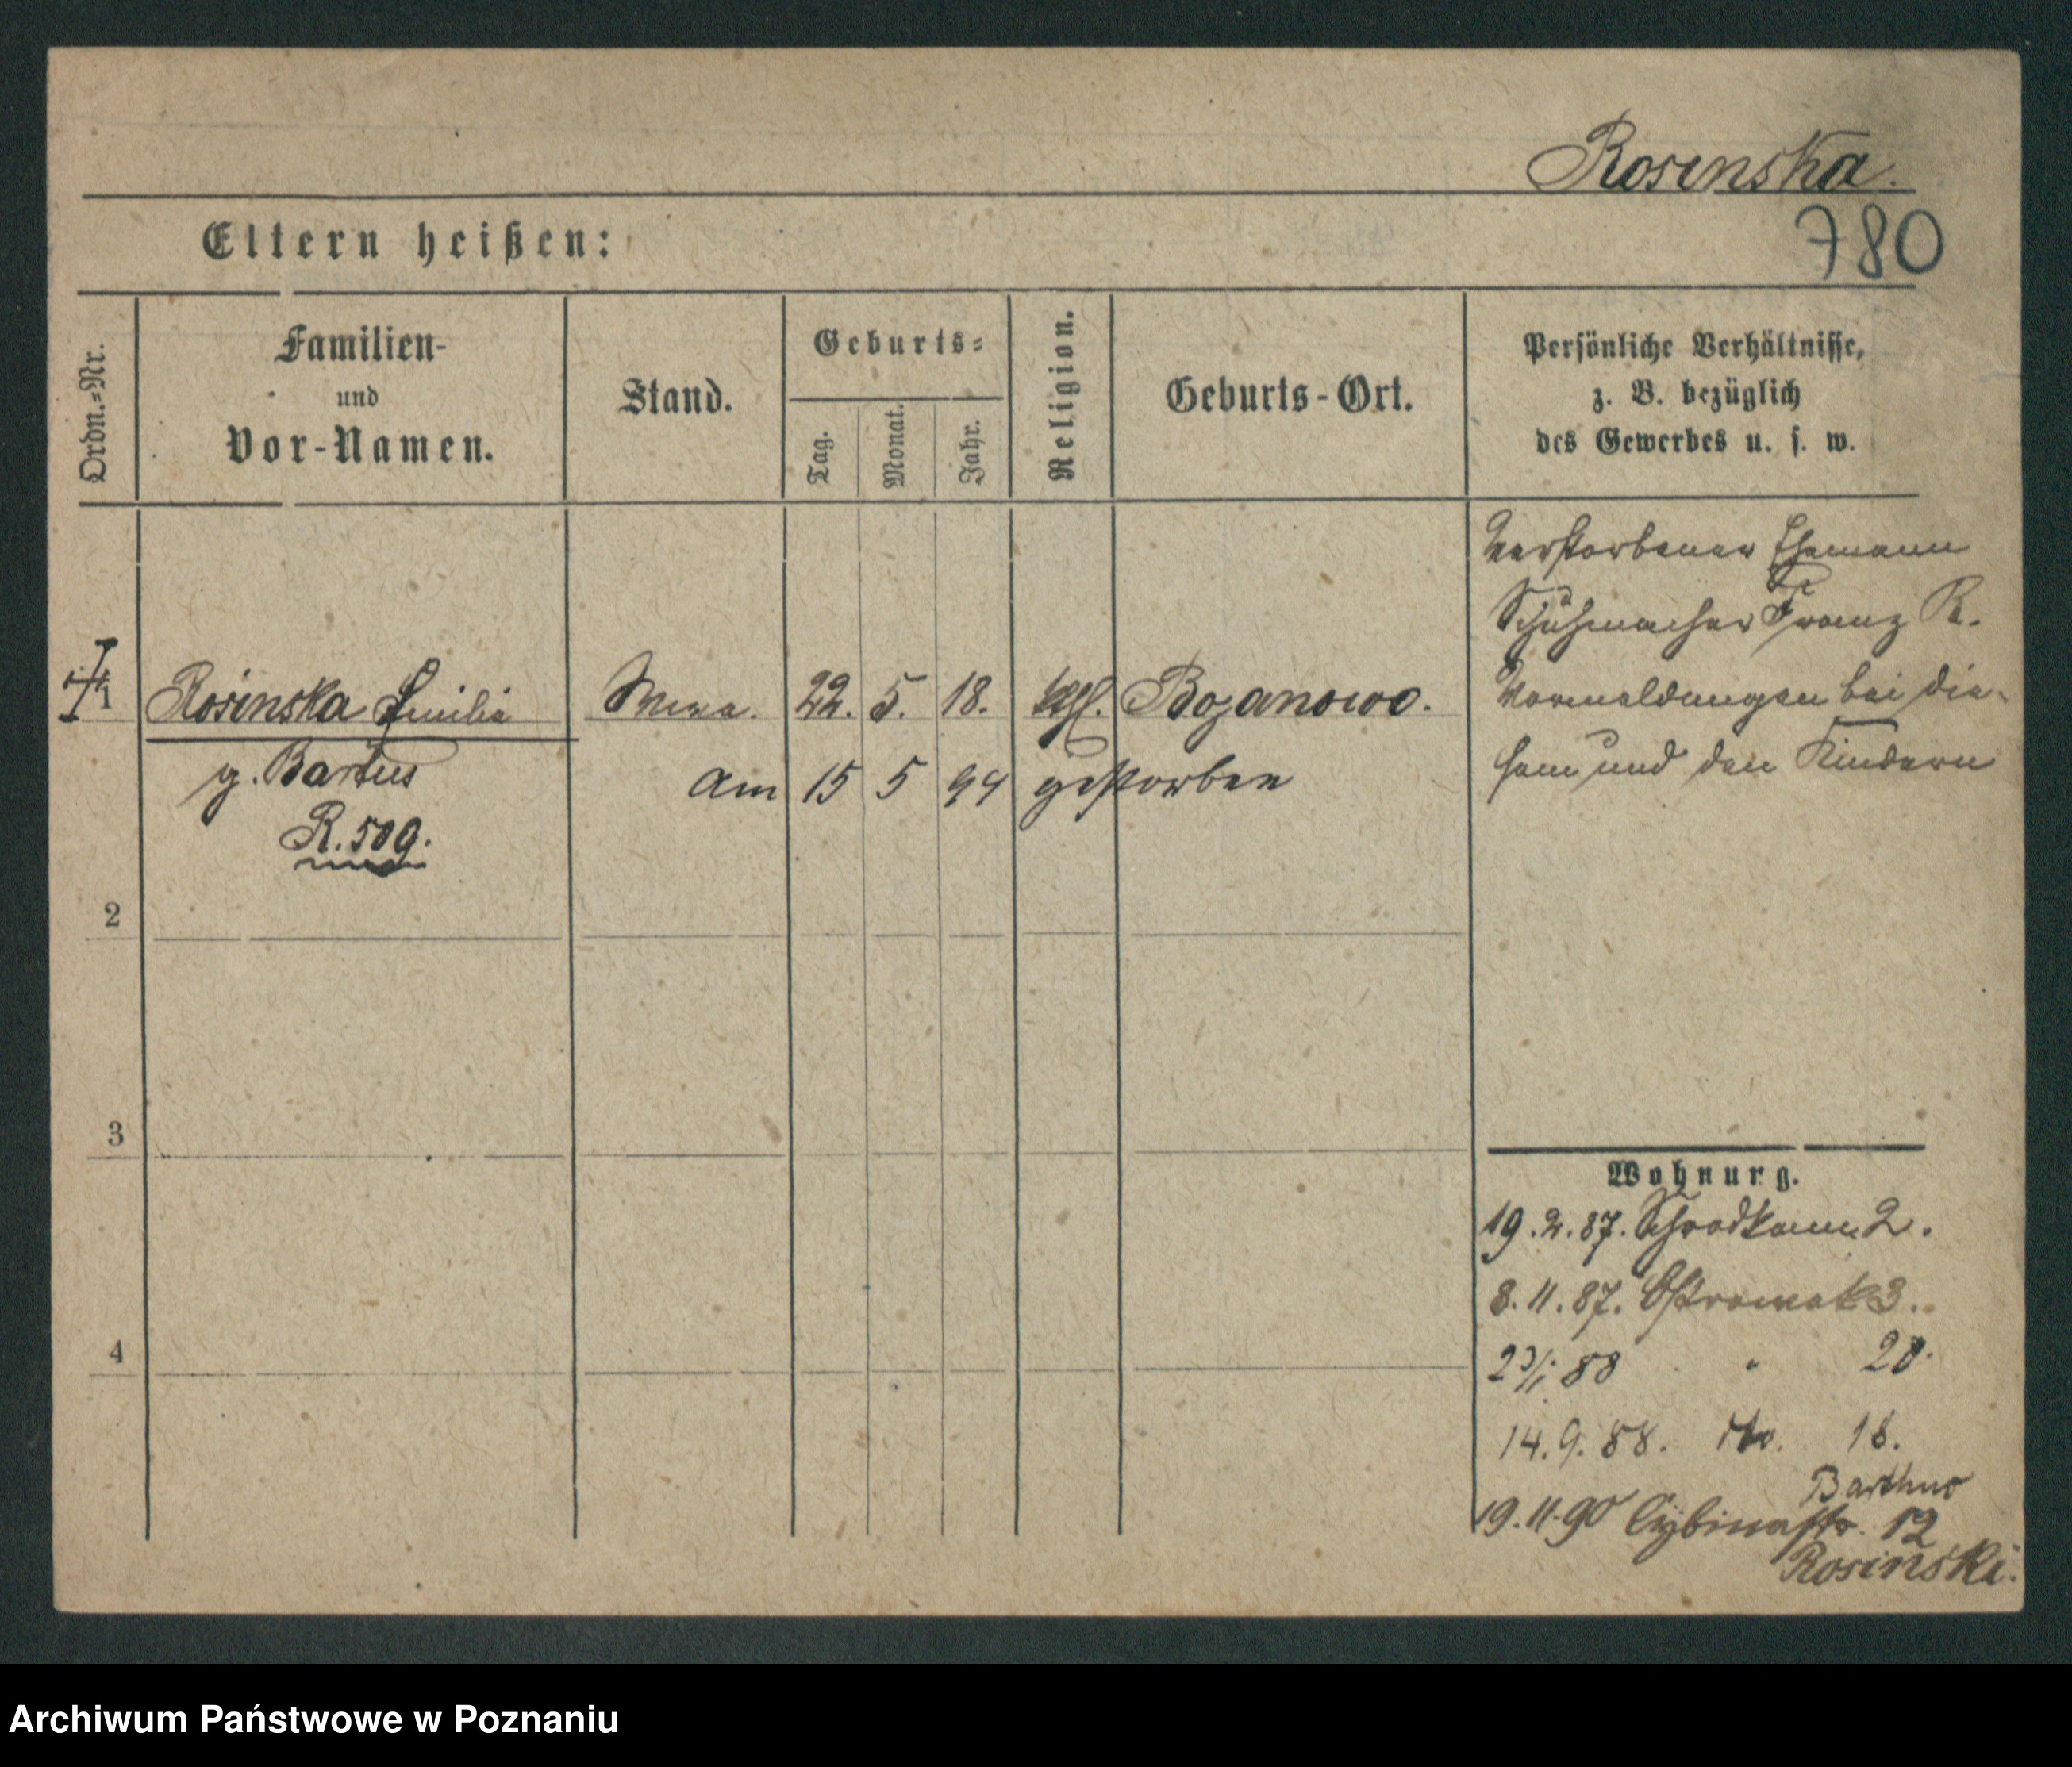 Rosinska.
780
Eltern heißen:
Ordn.-Nr.
Familien-
und
Vor-Namen.
Stand.
Geburts-
Tag.
Monat.
Jahr.
Religion.
Geburts-Ort.
Persönliche Verhältnisse,
z. B. bezüglich
des Gewerbes u. s. w.
verstorbener Ehemann
Schuhmacher Franz R.
Vormeldungen bei die-
sem und den Kindern
1 Rosinska Emilie Wwe. 22. 5. 18. kath. Bojanowo.
g. Bartus am 15 5 94 gestorben
R. 509.
2
3
4
Wohnung.
19.2.87. Schrodkam 2.
8.11.87. Ostrowek 3.
23/1 88 " 20.
14.9.88. dto. 18.
19.11.90 Cybinastr. 12
Rosinski.